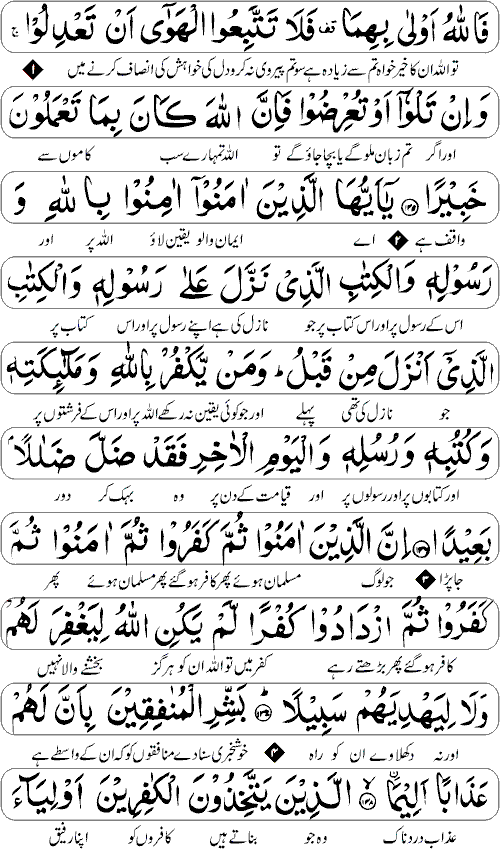 فَاللّٰهُ اَوْلٰى بِهِمَا قف فَلَا تَتَّبِعُوا الْهَوٰٓى اَنْ تَعْدِلُوْا ج
تو اللہ ان کا خیر خواہ تم سے زیادہ ہے سو تم پیروی نہ کرو دل کی خواہش کی انصاف کرنے میں ۱
وَاِنْ تَلْوٗٓا اَوْ تُعْرِضُوْا فَاِنَّ اللّٰهَ كَانَ بِمَا تَعْمَلُوْنَ
اور اگر تم زبان ملو گے یا بچا جاؤ گے تو اللہ تمہارے سب کاموں سے
خَبِيْرًا ۝۱۳۵ يٰٓاَيُّهَا الَّذِيْنَ اٰمَنُوْٓا اٰمِنُوْا بِاللّٰهِ وَ
واقف ہے ۲ اے ایمان والو یقین لاؤ اللہ پر اور
رَسُوْلِهٖ وَالْكِتٰبِ الَّذِىْ نَزَّلَ عَلٰى رَسُوْلِهٖ وَالْكِتٰبِ
اس کے رسول پر اور اس کتاب پر جو نازل کی ہے اپنے رسول پر اور اس کتاب پر
الَّذِىْٓ اَنْزَلَ مِنْ قَبْلُ ط وَمَنْ يَّكْفُرْ بِاللّٰهِ وَمَلٰٓئِكَتِهٖ
جو نازل کی تھی پہلے اور جو کوئی یقین نہ رکھے اللہ پر اور اس کے فرشتوں پر
وَكُتُبِهٖ وَرُسُلِهٖ وَالْيَوْمِ الْاٰخِرِ فَقَدْ ضَلَّ ضَلٰلًاۢ
اور کتابوں پر اور رسولوں پر اور قیامت کے دن پر وہ بہک کر دور
بَعِيْدًا ۝۱۳۶ اِنَّ الَّذِيْنَ اٰمَنُوْا ثُمَّ كَفَرُوْا ثُمَّ اٰمَنُوْا ثُمَّ
جا پڑا ۳ جو لوگ مسلمان ہوئے پھر کافر ہو گئے پھر مسلمان ہوئے پھر
كَفَرُوْا ثُمَّ ازْدَادُوْا كُفْرًا لَّمْ يَكُنِ اللّٰهُ لِيَغْفِرَ لَهُمْ
کافر ہو گئے پھر بڑھتے رہے کفر میں تو اللہ ان کو ہرگز بخشنے والا نہیں
وَلَا لِيَهْدِيَهُمْ سَبِيْلًا ط ۝۱۳۷ بَشِّرِ الْمُنٰفِقِيْنَ بِاَنَّ لَهُمْ
اور نہ دکھلاوے ان کو راہ ۴ خوشخبری سنا دے منافقوں کو کہ ان کے واسطے ہے
عَذَابًا اَلِيْمًا ۝۱۳۸ الَّذِيْنَ يَتَّخِذُوْنَ الْكٰفِرِيْنَ اَوْلِيَآءَ
عذاب دردناک وہ جو بناتے ہیں کافروں کو اپنا رفیق